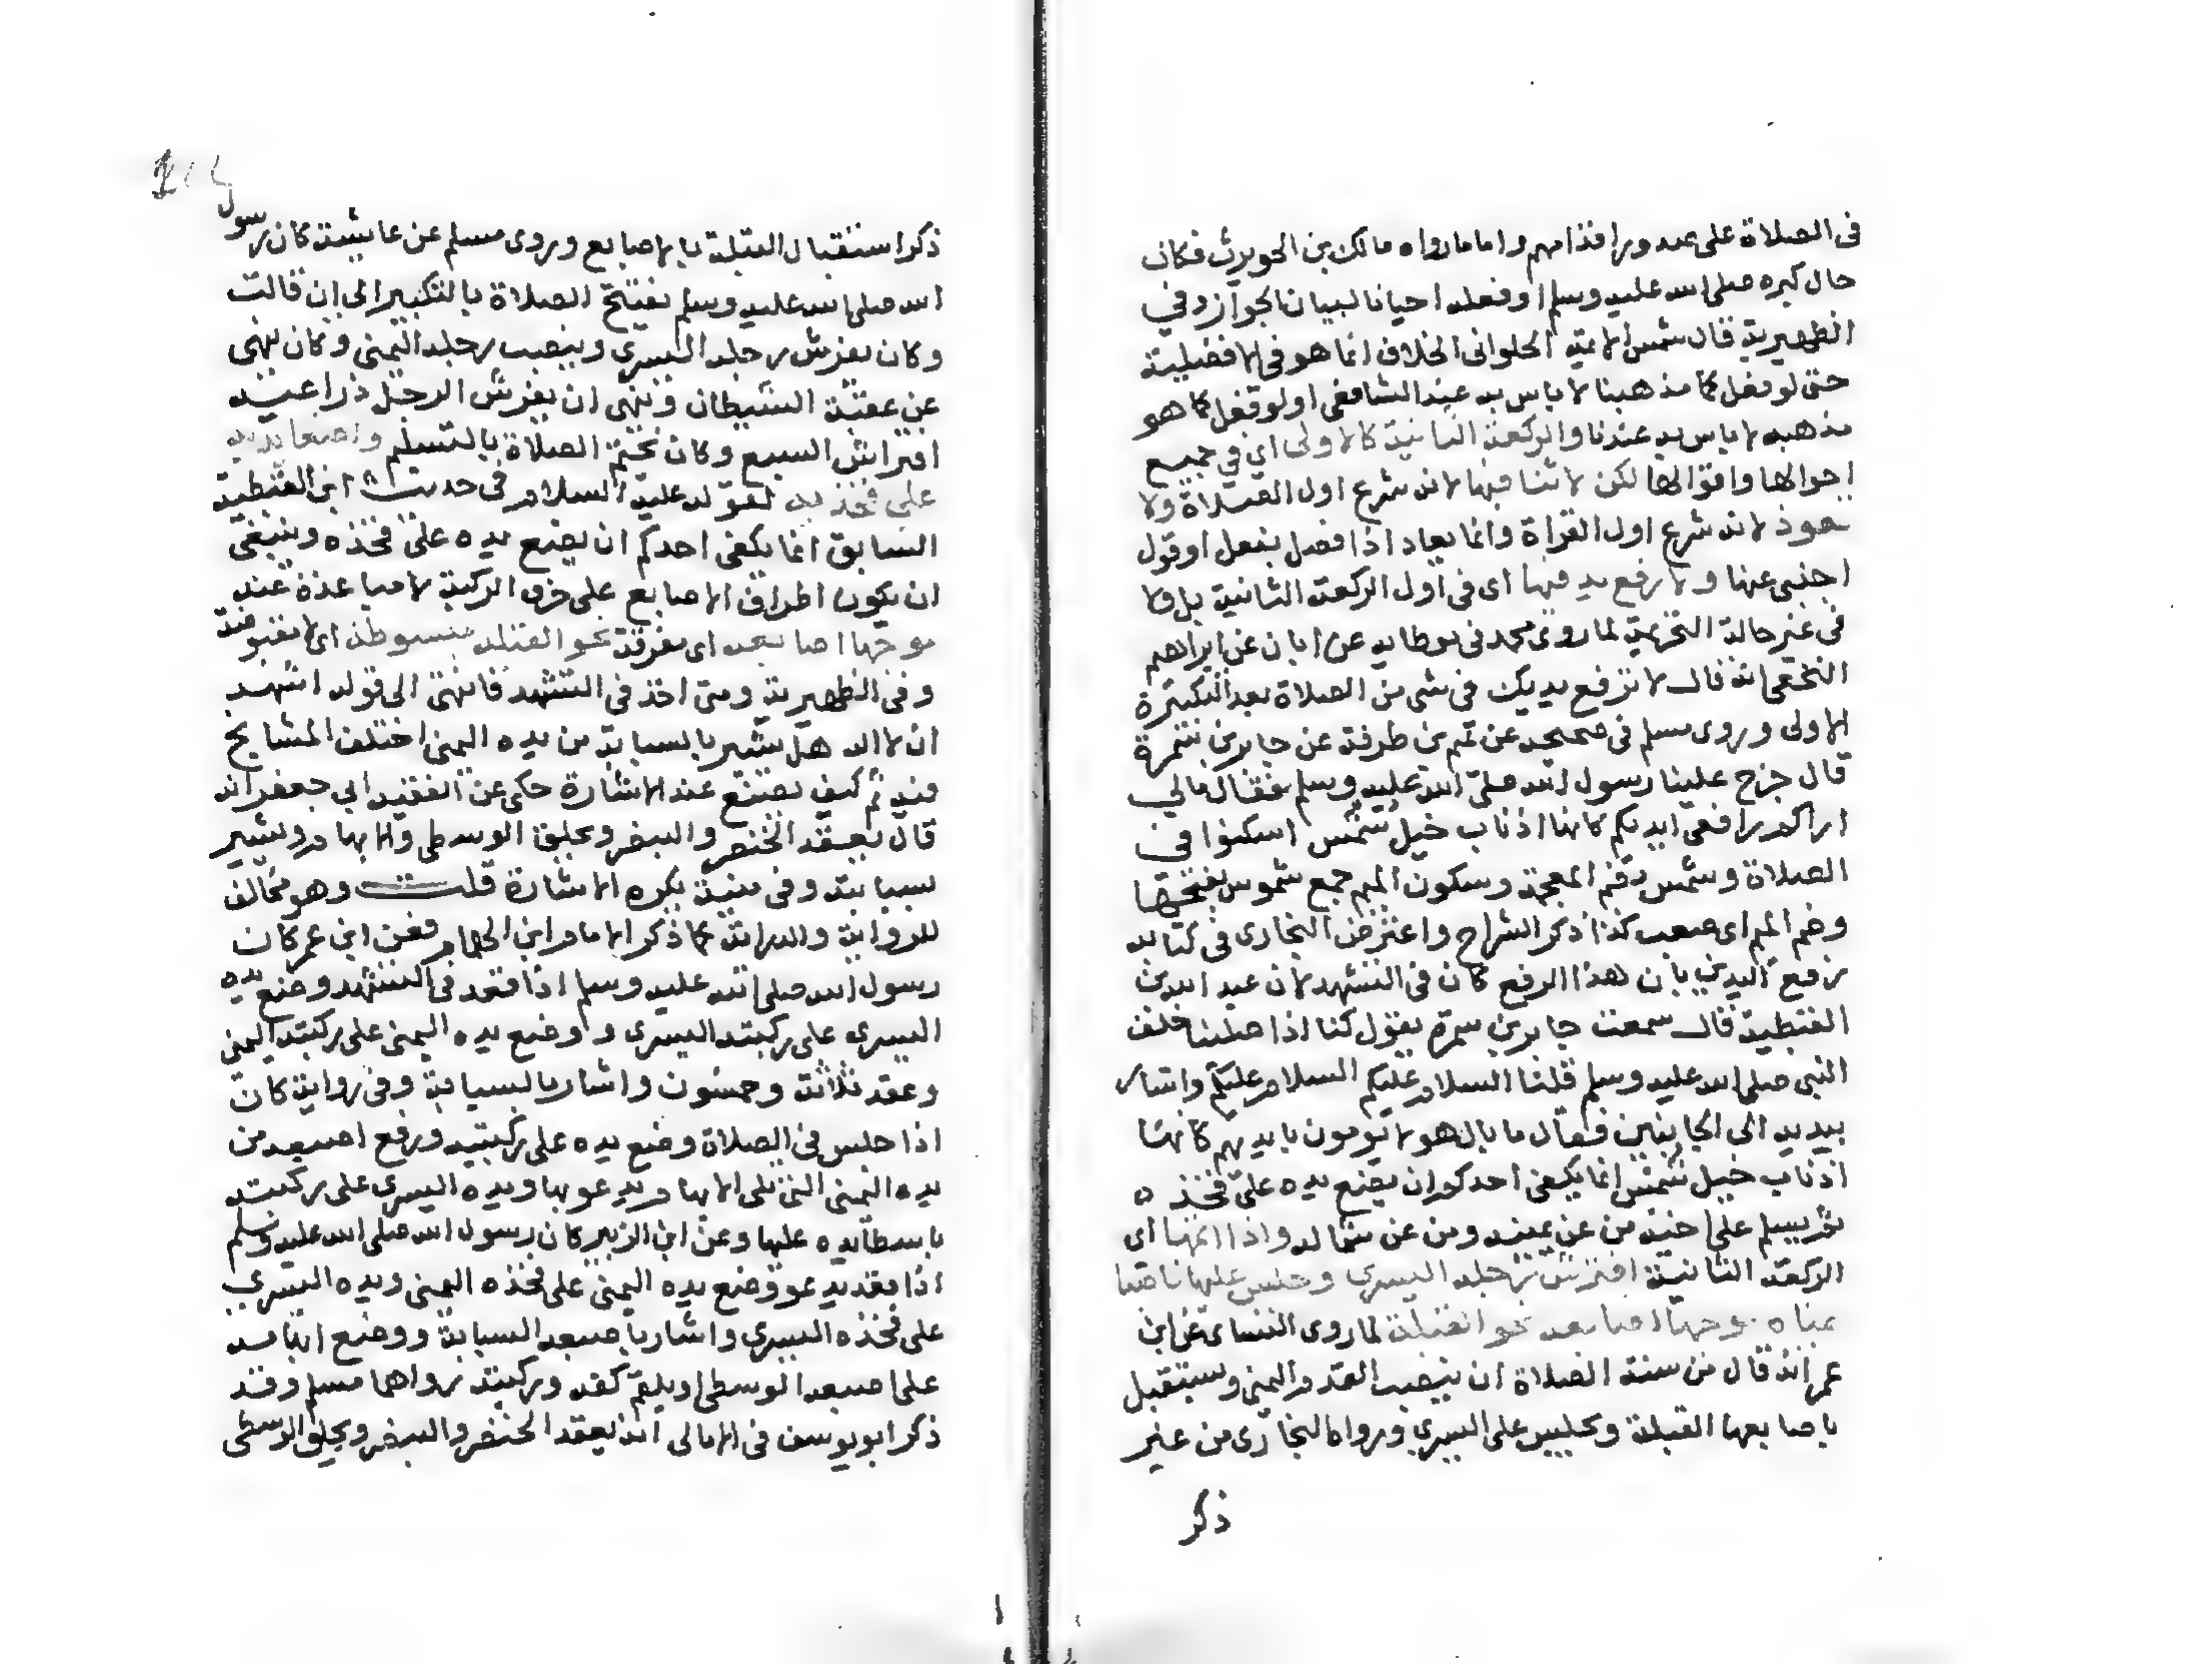 في الصلاة على صدور اقدامهم واما ما رواه مالك بن الحويرث فكان
حال كبره صلى الله عليه وسلم او فعله احيانا لبيان الجواز وفي
الظهيرية قال شمس الائمة الحلواني الخلاف انما هو في الافضلية
حتى لو فعل كما مذهبنا لا باس به عند الشافعي ولو فعل كما هو
مذهبه لا باس به عندنا والركعة الثانية كالاولى اي في جميع
احوالها واقوالها لكن لا ثنا فيها لانه شرع اول الصلاة ولا
تعوذ لانه شرع اول القراة وانما يعاد اذا فصل بفعل او قول
اجنبي عنها ولا رفع يد فيها اي في اول الركعة الثانية بل ولا
في غير حالة التحريمة لما روى محمد في موطايه عن ابان عن ابراهيم
النخعي انه قال لا ترفع يديك في شي من الصلاة بعد التكبيرة
الاولى وروى مسلم في صحيحه عن تميم بن طرفة عن جابر بن سمرة
قال خرج علينا رسول الله صلى الله عليه وسلم فقال مالي
اراكم رافعي ايديكم كانها اذناب خيل شمس اسكنوا في
الصلاة وشمس بضم المعجمة وسكون الميم جمع شموس بفتحها
وضم الميم اي صعب كذا ذكر الشراح واعترض البخاري في كتابه
رفع اليدين بان هذا الرفع كان في التشهد لان عبد الله بن
القبطية قال سمعت جابر بن سمرة يقول كنا اذا صلينا خلف
النبي صلى الله عليه وسلم قلنا السلام عليكم السلام عليكم واشار
بيديه الى الجانبين فقال ما بال هولا يومون بايديهم كانها
اذناب خيل شمس انما يكفي احدكم ان يضع يده على فخذه
ثم يسلم على اخيه من عن يمينه ومن عن شماله واذا اتمها اي
الركعة الثانية افترش رجله اليسرى وجلس عليها ناصبا
يمناه موجها اصابعه نحو القبلة لما روى النساي عن ابن
عمر انه قال من سنة الصلاة ان ينصب القدم اليمنى ويستقبل
باصابعها القبلة ويجلس على اليسرى ورواه البخاري من غير
ذكر
ذكر استقبال القبلة بالاصابع وروى مسلم عن عايشة كان رسول
الله صلى الله عليه وسلم يفتتح الصلاة بالتكبير الى ان قالت
وكان يفرش رجله اليسرى وينصب رجله اليمنى وكان ينهى
عن عقبة الشيطان وينهى ان يفرش الرجل ذراعيه
افتراش السبع وكان يختم الصلاة بالتسليم واضعا يديه
على فخذيه لقوله عليه السلام في حديث ابن القبطية
السابق انما يكفي احدكم ان يضع يده على فخذه وينبغي
ان يكون اطراف الاصابع على حرف الركبة لا مباعدة عنه
موجها اصابعه اي مفرقة نحو القبلة مبسوطة اي لا مقبوضة
وفي الظهيرية ومتى اخذ في التشهد فانتهى الى قوله اشهد
ان لا اله هل يشير بالسبابة من يده اليمنى اختلف المشايخ
فيه ثم كيف يصنع عند الاشارة حكي عن الفقيه ابي جعفر انه
قال يعقد الخنصر والبنصر ويحلق الوسطى والابهام ويشير
بسبابته وفي منية يكره الاشارة قلت وهو مخالف
للرواية والدراية كما ذكر الامام ابن الهمام فعن ابن عمر كان
رسول الله صلى الله عليه وسلم اذا قعد في التشهد وضع يده
اليسرى على ركبته اليسرى ووضع يده اليمنى على ركبته اليمنى
وعقد ثلاثة وخمسون واشار بالسبابة وفي رواية كان
اذا جلس في الصلاة وضع يده على ركبتيه ورفع اصبعه من
يده اليمنى التي تلي الابهام يدعو بها ويده اليسرى على ركبته
باسطا يده عليها وعن ابن الزبير كان رسول الله صلى الله عليه وسلم
اذا قعد يدعو وضع يده اليمنى على فخذه اليمنى ويده اليسرى
على فخذه اليسرى واشار باصبعه السبابة ووضع ابهامه
على اصبعه الوسطى ويلقم كفه وركبته رواهما مسلم وقد
ذكر ابو يوسف في الامالي انه يعقد الخنصر والبنصر ويحلق الوسطى